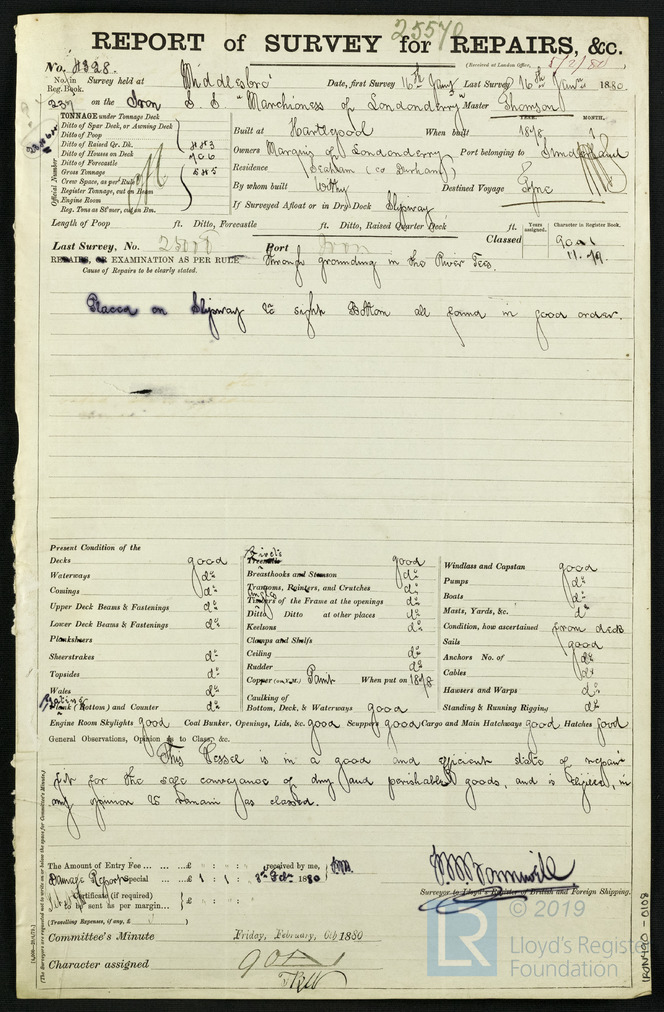 25570
REPORT of SURVEY for REPAIRS, &c.
No. 4328. (Received at London Office, 5/2/80)
No. in Reg. Book. Survey held at Middlesbro' Date, first Survey 16th Jany Last Survey 16th Jany 1880.
237 on the Iron S.S. "Marchioness of Londonderry" Master Thomson
TONNAGE under Tonnage Deck
Ditto of Spar Deck, or Awning Deck
Ditto of Poop
Ditto of Raised Qr. Dk. 483
Ditto of Houses on Deck 706
Ditto of Forecastle
Gross Tonnage 545
Crew Space, as per Rule
Register Tonnage, cut on Beam
Engine Room
Reg. Tons as St'mer, cut on Bm.
Official Number
Built at Hartlepool When built YEAR. 1878 MONTH. 1
Owners Marquis of Londonderry Port belonging to Sunderland
Residence Seaham (Co Durham)
By whom built Withy Destined Voyage Tyne
If Surveyed Afloat or in Dry Dock Slipway
Length of Poop ft. Ditto, Forecastle ft. Ditto, Raised Quarter Deck ft. Years assigned. Character in Register Book.
Last Survey, No. Port Classed 90A1
11.79
REPAIRS, OR EXAMINATION AS PER RULE Through grounding in the River Tees.
Cause of Repairs to be clearly stated.
Placed on Slipway to sight Bottom all found in good order.
Present Condition of the
Decks good
Waterways do
Comings do
Upper Deck Beams & Fastenings do
Lower Deck Beams & Fastenings do
Planksheers
Sheerstrakes do
Topsides do
Wales do
Plating Plank (Bottom) and Counter do
Rivets Treenails good
Breasthooks and Stemson do
Transoms, Pointers, and Crutches do
Timbers of the Frame at the openings do
Ditto Ditto at other places do
Keelsons do
Clamps and Shelfs
Ceiling do
Rudder do
Copper (or Y.M.) Paint When put on 1878
Caulking of
Bottom, Deck, & Waterways good
Windlass and Capstan good
Pumps do
Boats do
Masts, Yards, &c. do
Condition, how ascertained from deck
Sails good
Anchors No. of do
Cables do
Hawsers and Warps do
Standing & Running Rigging do
Engine Room Skylights good Coal Bunker, Openings, Lids, &c. good Scuppers good Cargo and Main Hatchways good Hatches good
General Observations, Opinion as to Class, &c.
This Vessel is in a good and efficient state of repair
fit for the safe conveyance of dry and perishable goods, and is eligible, in
my opinion to remain as classed.
The Amount of Entry Fee ... £ : : received by me,
Damage Report Special ... £ 1 : 1 : 3rd Feb 1880
Certificate (if required)
to be sent as per margin
(Travelling Expenses, if any, £ )
Surveyor to Lloyd's Register of British and Foreign Shipping.
Committee's Minute Friday, February, 6th 1880
Character assigned 90A1
(The Surveyors are requested not to write on or below the space for Committee's Minute.)
© 2019
Lloyd's Register
Foundation
IRON490-0108